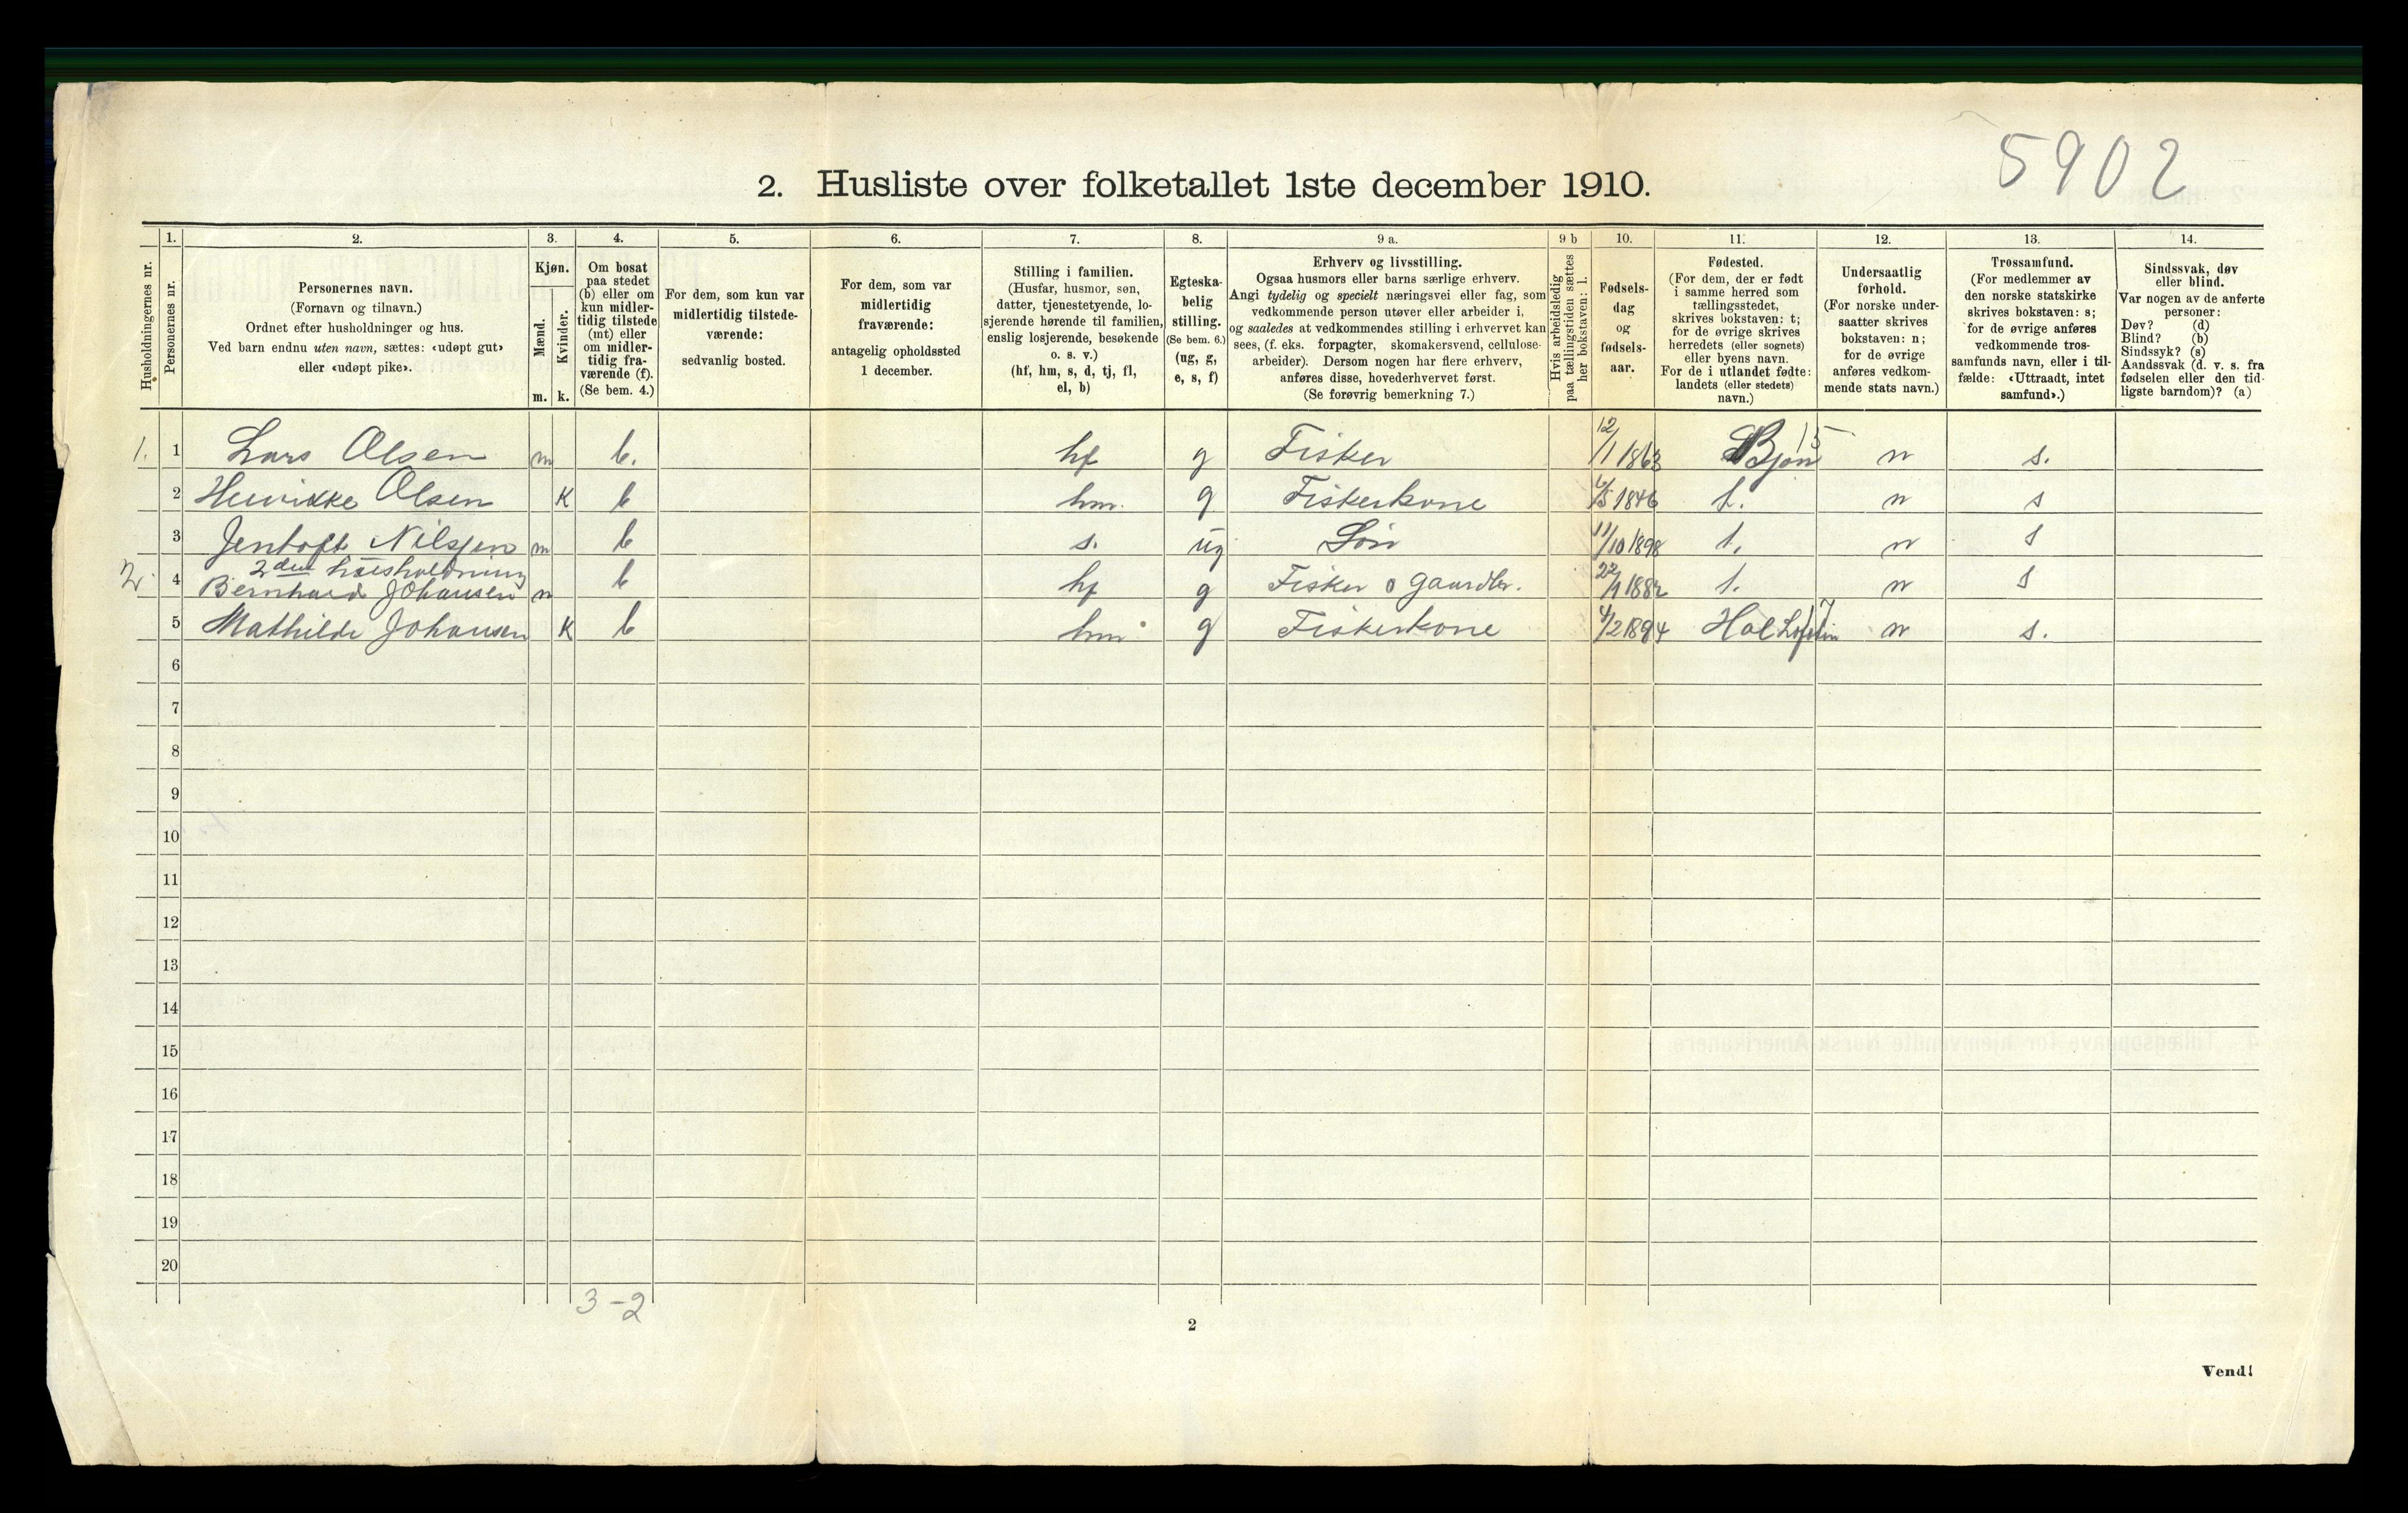 5902
2. Husliste over folketallet 1ste december 1910.
Husholdningernes nr.
1. Personernes nr.
2. Personernes navn.
(Fornavn og tilnavn.)
Ordnet efter husholdninger og hus.
Ved barn endnu uten navn, sættes: «udøpt gut»
eller «udøpt pike».
3. Kjøn.
Mænd. Kvinder.
m. k.
4. Om bosat
paa stedet
(b) eller om
kun midler-
tidig tilstede
(mt) eller
om midler-
tidig fra-
værende (f).
(Se bem. 4.)
5. For dem, som kun var
midlertidig tilstede-
værende:
sedvanlig bosted.
6. For dem, som var
midlertidig
fraværende:
antagelig opholdssted
1 december.
7. Stilling i familien.
(Husfar, husmor, søn,
datter, tjenestetyende, lo-
sjerende hørende til familien,
enslig losjerende, besøkende
o. s. v.)
(hf, hm, s, d, tj, fl,
el, b)
8. Egteska-
belig
stilling.
(Se bem. 6.)
(ug, g,
e, s, f)
9 a. Erhverv og livsstilling.
Ogsaa husmors eller barns særlige erhverv.
Angi tydelig og specielt næringsvei eller fag, som
vedkommende person utøver eller arbeider i,
og saaledes at vedkommendes stilling i erhvervet kan
sees, (f. eks. forpagter, skomakersvend, cellulose-
arbeider). Dersom nogen har flere erhverv,
anføres disse, hovederhvervet først.
(Se forøvrig bemerkning 7.)
9 b Hvis arbeidsledig
paa tællingstiden sættes
her bokstaven: l.
10. Fødsels-
dag
og
fødsels-
aar.
11. Fødested.
(For dem, der er født
i samme herred som
tællingsstedet,
skrives bokstaven: t;
for de øvrige skrives
herredets (eller sognets)
eller byens navn.
For de i utlandet fødte:
landets (eller stedets)
navn.)
12. Undersaatlig
forhold.
(For norske under-
saatter skrives
bokstaven: n;
for de øvrige
anføres vedkom-
mende stats navn.)
13. Trossamfund.
(For medlemmer av
den norske statskirke
skrives bokstaven: s;
for de øvrige anføres
vedkommende tros-
samfunds navn, eller i til-
fælde: «Uttraadt, intet
samfund».)
14. Sindssvak, døv
eller blind.
Var nogen av de anførte
personer:
Døv? (d)
Blind? (b)
Sindssyk? (s)
Aandssvak (d. v. s. fra
fødselen eller den tid-
ligste barndom)? (a)
1. 1 Lars Olsen m b. hf g Fisker 12/1 1863 Bjørn 15 n s.
2 Henrikke Olsen K b hm. g Fiskerkone 6/5 1846 t. n s
3 Jentoft Nilsen m b s. ug Søn 11/10 1898 t. n s
2den husholdning
2. 4 Bernhard Johansen m b hf g Fisker o gaardbr. t. n s
5 Mathilde Johansen K b hm g Fiskerkone Hol Lofoten 7 n s.
6
7
8
9
10
11
12
13
14
15
16
17
18
19
20
3-2
2
Vend!